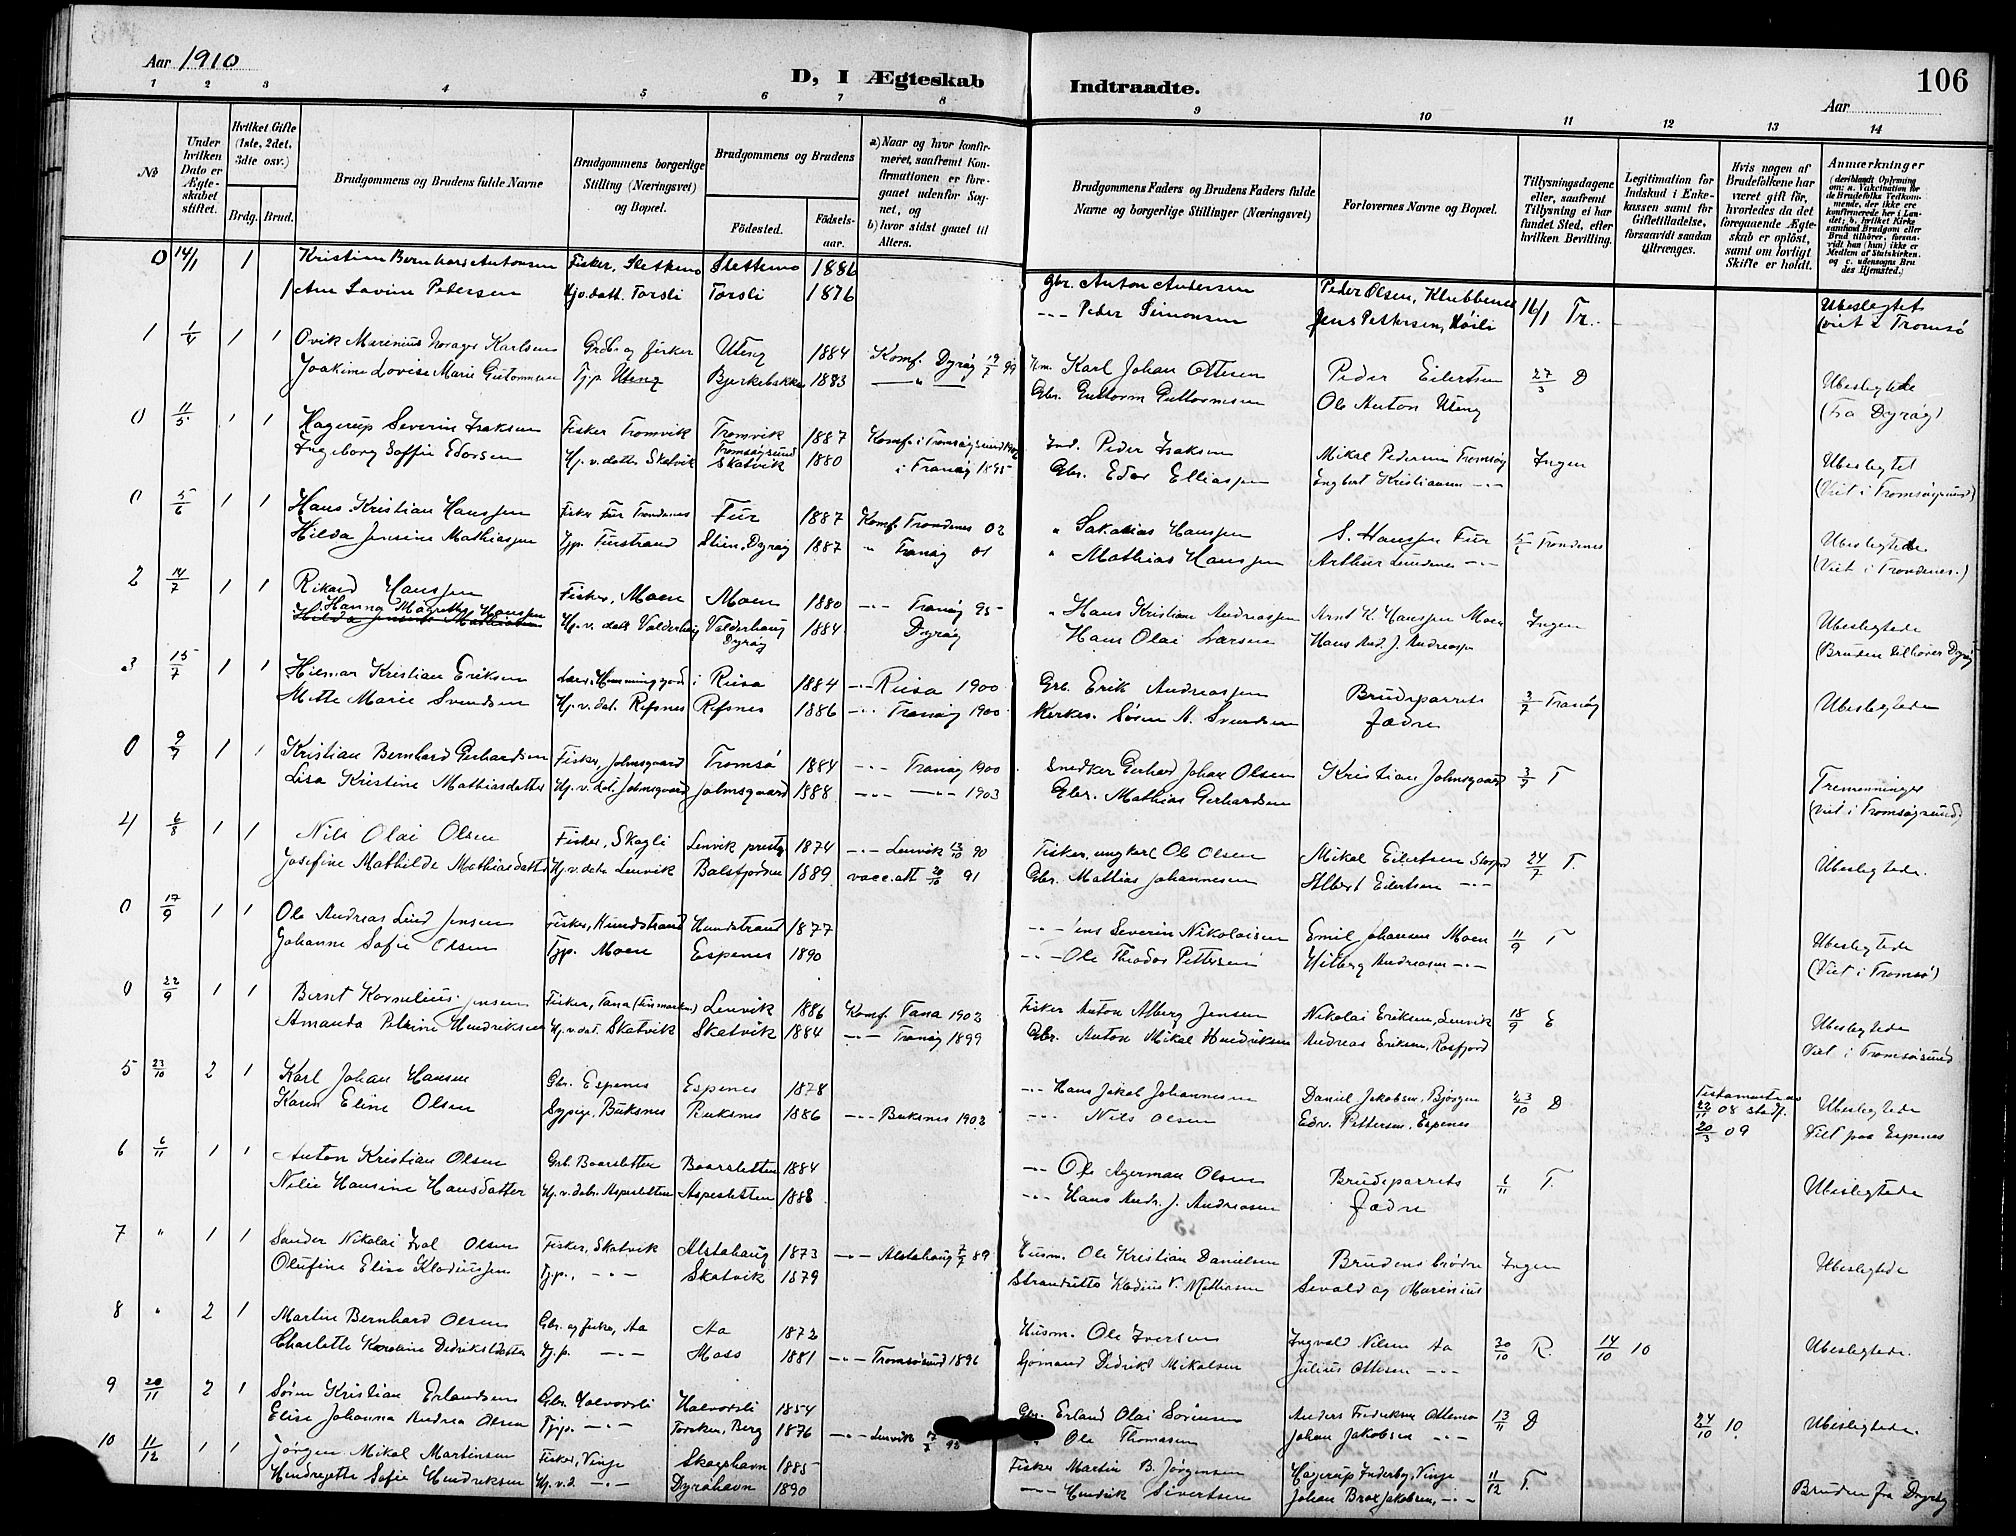 Aar 1910
D, I Ægteskab Indtraadte.
106
Aar
1 2 3 4 5 6 7 8 9 10 11 12 13 14
No
Under hvilken Dato er Ægteskabet stiftet.
Hvilket Gifte (1ste, 2det, 3die osv.)
Brdg. Brud.
Brudgommens og Brudens fulde Navne
Brudgommens borgerlige Stilling (Næringsvei) og Bopæl.
Brudgommens og Brudens
Fødested.
Fødselsaar.
a) Naar og hvor konfirmeret, saafremt Konfirmationen er foregaaet udenfor Sognet, og
b) hvor sidst gaaet til Alters.
Brudgommens Faders og Brudens Faders fulde Navne og borgerlige Stillinger (Næringsvei)
Forlovernes Navne og Bopæl.
Tillysningsdagene eller, saafremt Tillysning ei har fundet Sted, efter hvilken Bevilling.
Legitimation for Indskud i Enkekassen samt for Giftetilladelse, forsaavidt saadan tiltrænges.
Hvis nogen af Brudefolkene har været gift før, hvorledes da det foregaaende Ægteskab er opløst, samt om lovligt Skifte er holdt.
Anmærkninger (deriblandt Oplysning om: a. Vakcination for de Brudefolks Vedkommende, der ikke ere konfirmerede her i Landet; b. hvilket Kirkesamfund Brudgom eller Brud tilhører, forsaavidt han (hun) ikke er Medlem af Statskirken, og c. udensogns Brudes Hjemsted.)
0 14/1 1 Kristian Bernhard Antonsen Fisker, Slettemo Slettemo 1886 Gbr. Anton Andersen Peder Olsen, Klubbenes 16/1 Tr. Ubeslegtet
1 Ane Lovine Petersen Hjv. datt. Torsli Torsli 1876 -"- Peder Simonsen Jens Pettersen, Høsli (viet i Tromsø
1 1/4 1 1 Ovik Marenius Norager Karlsen Grbr. og fisker Uteng 1884 Komf. Dyrøy 19/7 99 Hm. Karl Johan Ottesen Peder Eilertsen 27/3 D Ubeslegtede
Joakime Lovise Marie Guttormsen Tjp. Uteng Bjerkebakken 1883 -"- Gbr. Guttorm Guttormsen Ole Anton Uteng (Fra Dyrøy)
0 11/5 1 1 Hagerup Severin Isaksen Fisker Tromvik Tromvik Tromsøysund 1887 Komf. i Tromsøysund Ind. Peder Isaksen Mikal Pedersen Tromsøy Ingen Ubeslegtet
Ingeborg Soffie Edorsen Hj. v. datter Skatvik Skatvik 1880 i Tranøy 1895 Gbr. Edor Elliassen Engbert Kristiansen -"- (Viet i Tromsøysund)
0 5/6 1 1 Hans Kristian Hanssen Fisker Fur Trondenes Fur 1887 Komf. Trondenes 02 " Sakarias Hanssen S. Hanssen Fur 5/6 Trondenes Ubeslegtede
Hilda Jensine Mathiassen Tjp. Furstrand Stien, Dyrøy 1887 " Tranøy 01 " Mathias Hanssen Arthur Lundenes -"- (Viet i Trondenes.)
2 14/7 1 1 Rikard Hanssen Fisker, Moen Moen 1880 -"- Tranøy 95 " Hans Kristian Andreassen Arnt K. Hanssen Moen Ingen Ubeslegtede
Hanna Magrethe Hanssen Hj. v. datt Valderhaug Valderhaug Dyrøy 1884 Dyrøy Hans Olai Larsen Hans And. J. Andreassen (Bruden tilhører Dyrøy
Hilda Jensine Mathiassen
3 15/7 1 1 Hilmar Kristian Eriksen Reisa 1884 -"- Reisa 1900 Grb. Erik Andreassen Brudeparrets 3/7 Tranøy Ubeslegtede
Mette Marie Svendsen Hj. v. dat. Refsnes Refsnes 1886 -"- Tranøy 1900 Kirkes. Søren A. Svendsen Fædre
0 9/7 1 1 Kristian Bernhard Gerhardsen Fisker, Johnsgaard Tromsø 1884 -"- Tranøy 1900 Snedker Gerhard Johan Olsen Kristian Johnsgaard 3/7 T Tremenninger
Lisa Kristine Mathiasdatter Hj. v. dat. Johnsgaard Johnsgaard 1888 -"- -"- 1903 Gbr. Mathias Gerhardsen (viet i Tromsøysund)
4 6/8 1 1 Nils Olai Olsen Fisker, Skogli Lenvik prestg 1874 -"- Lenvik 13/10 90 Fisker, ungkarl Ole Olsen Mikal Eilertsen 24/7 T. Ubeslegtede.
Josefine Mathilde Mathiasdatter Hj. v. datr Lenvik Balsfjorden 1889 vacc. att 20/10 91 Gbr. Mathias Johannesen Albert Eilertsen -"-
0 17/9 1 1 Ole Andreas Lind Jensen Fisker, Hundstrand Hundstrand 1877 -"- Jens Severin Nikolaisen Emil Johansen Moen 11/9 T Ubeslegtede
Johanne Sofie Olsen Tjp. Moen Espenes 1890 -"- Ole Theodor Pettersen Hilberg Andreasen -"- (Viet i Tromsø)
0 22/9 1 1 Bernt Kornelius Jensen Fisker, Tana (Finmarken) Lenvik 1886 Komf. Tana 1903 Fisker Anton Alberg Jensen Nikolai Eriksen, Lenvik 18/9 E Ubeslegtede
Amanda Petrine Hendriksen Hj. v. dat. Skatvik Skatvik 1884 -"- Tranøy 1899 Gbr. Anton Mikal Hendriksen Andreas Eriksen, Rosfjord Viet i Tromsøsund
5 23/10 2 1 Karl Johan Hansen Gbr. Espenes Espenes 1878 -"- Hans Jakob Johannesen Daniel Jakobsen, Bjørgen 23/10 D Testamente av 22/11 08 stadf. 20/3 09 Ubeslegtede
Karen Eline Olsen Sypige, Buksnes Buksnes 1886 -"- Buksnes 1903 -"- Nils Olsen Edv. Pettersen, Espenes Viet paa Espenes
6 6/11 1 1 Anton Kristian Olsen Grb. Baarsletten Baarsletten 1884 -"- Ole Agerman Olsen Brudeparrets 6/11 T. Ubeslegtede
Nelie Hansine Hansdatter Hj. v. datr. Aspesletten Aspesletten 1888 -"- Hans Andr. J. Andreasen Fædre
7 " 1 1 Sander Nikolai Ival Olsen Fisker, Skatvik Alstahaug 1873 -"- Alstahaug 7/7 89 Husm. Ole Kristian Danielsen Brudens brødre Ingen Ubeslegtede
Olufine Elise Klodiussen Tjp., -"- Skatvik 1879 Strandsitte Klodius V. Mathiasen Sevald og Marenius
8 " 2 1 Martin Bernhard Olsen Gbr. og fisker, Aa Aa 1872 Husm. Ole Iversen Ingvald Nilsen Aa 30/10 R. 14/10 10 Ubeslegtede.
Charlotte Karoline Dedriksdatter Tj. p. -"- Moss 1881 -"- Tromsøsund 1896 Sjømand Dedrik Mikalsen Julius Ottesen -"-
9 20/11 2 1 Søren Kristian Erlandsen Gbr. Halvorsli Halvorsli 1854 Gbr. Erland Olai Sørensen Anders Fredriksen Ottemo 13/11 D 24/10 10 Ubeslegtede.
Elise Johanna Andrea Olsen Tjp. -"- Torsken, Berg 1876 -"- Lenvik 17/7 92 " Ole Thomasen Johan Jakobsen -"-
10 11/12 1 1 Jørgen Mikal Martinsen Fisker, Vinje Skogshavn 1885 Fisker Martin B. Jørgensen Hagerup Inderby, Vinje 11/12 T.
Hendrejette Sofie Hendriksen Hj. v. d. -"- Dyrøhavn 1890 -"- Hendrik Sivertsen Johan Brox Jakobsen, -"- Bruden fra Dyrøy